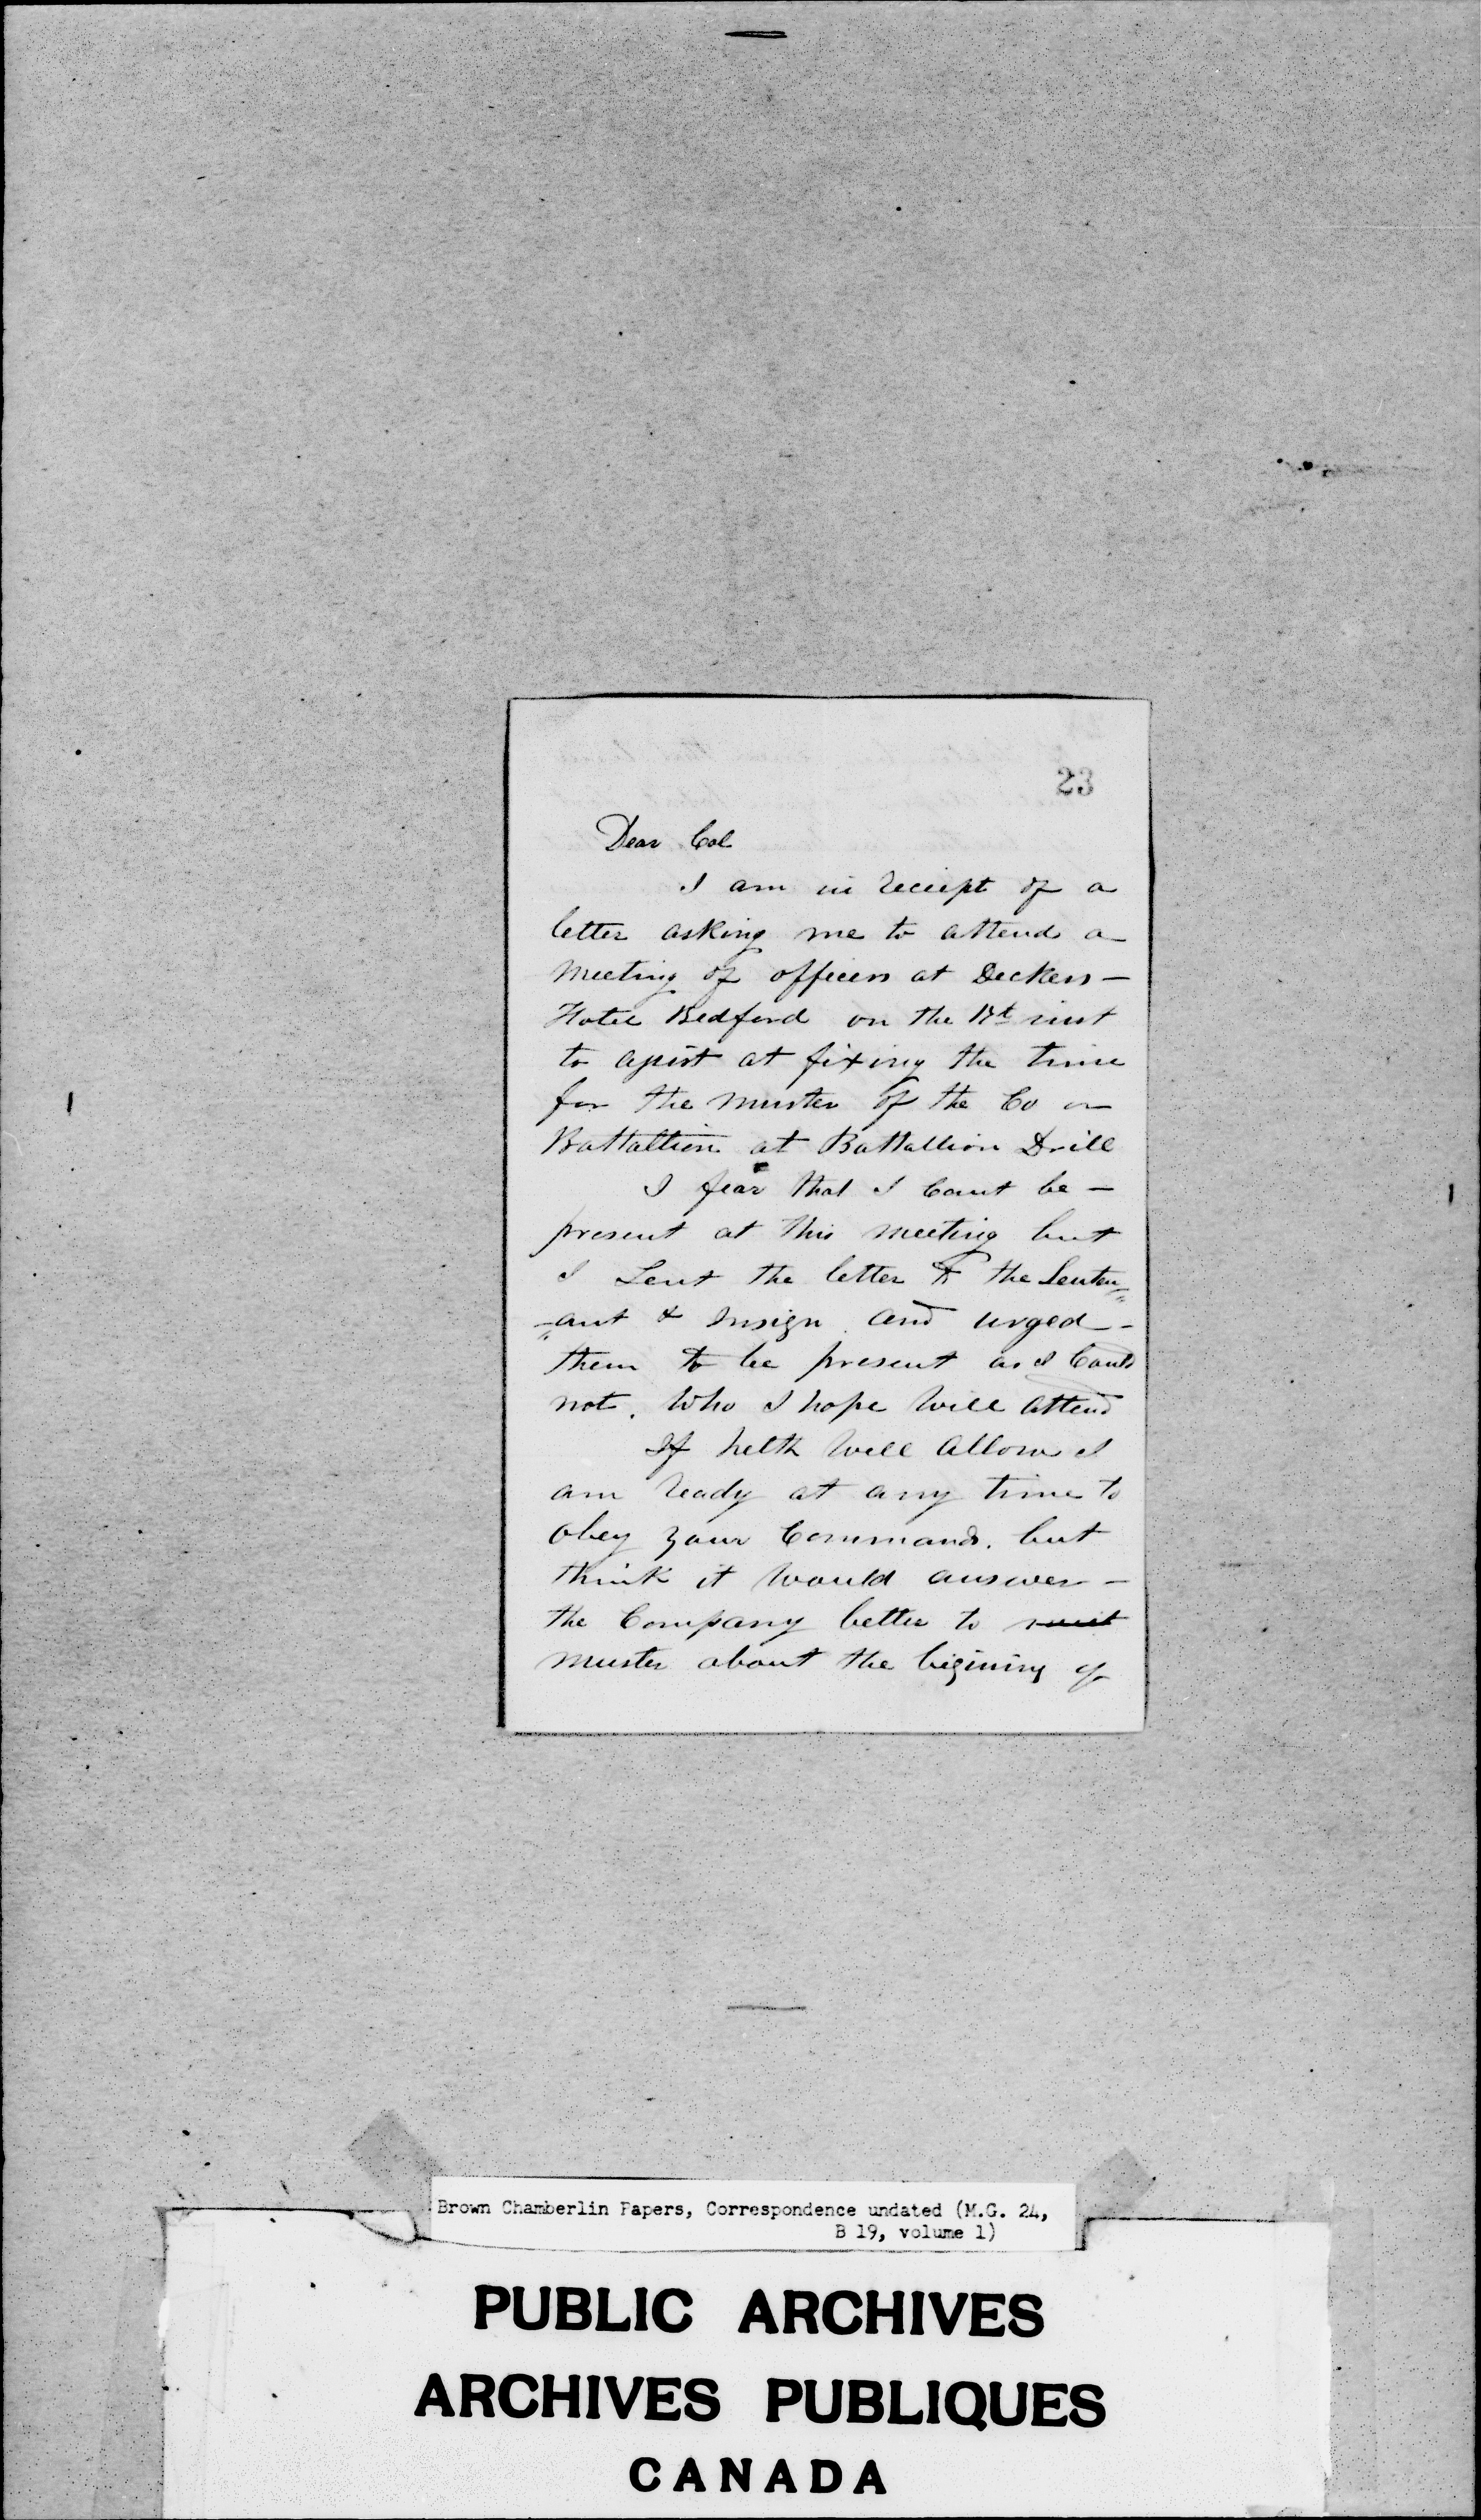 23
Dear Col
I am in receipt of a
letter asking me to attend a
meeting of officers at Deckers -
Hotel Bedford on the inst
to assist at fixing the time
for the muster of the Co or
Battallion at Battallion Drill
I fear that I Cant be -
present at this meeting but
I Sent the letter to the Leuten
-ant & Insign and urged -
them to be present as I Could
not. Who I hope Will attend
If helth Will Allow I
am ready at any time to
obey your Command. but
think it Would answer -
the Company better to
muster about the bigining of
Brown Chamberlin Papers, Correspondence undated (M.G. 24,
B 19, volume 1)
PUBLIC ARCHIVES
ARCHIVES PUBLIQUES
CANADA